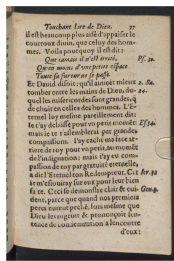 Touchant l'ire de Dieu. 37
il est beaucoup plus aisé d'appaiser le
courroux divin, que celuy des hom-
mes. Voila pourquoy il est dit:
Que jamais il n'est irrité, Ps. 30.
Qu'en moins d'un petite espace
Toute sa fureur ne se passe.
Et David disoit; qu'il aimoit mieux 2. Sa.
tomber entre les mains de Dieu, du- 24.
quel les misericordes sont grandes, q
de choir en celles des hommes. L'E-
ternel luy mesme pareillement dit:
je t'ay delaissé pour un petit momét Es. 54.
mais je te rassembleray par grandes
compassions. J'ay caché ma face ar-
riere de toy pour un petit, au momét
de l'indignation; mais j'ay eu com-
passion de toy par gratuité eternelle,
a dit l'Eternel ton Redempteur. C'est
je m'esjouiray sur eux pour leur bien
faire. Ceci se demonstre clair &
dent, parce que quand nos premiers
peres eurent peché, lors mesme que
Dieu les jugeoit & prononçoit sen-
tence de condamnation à l'encontre
d'eux: